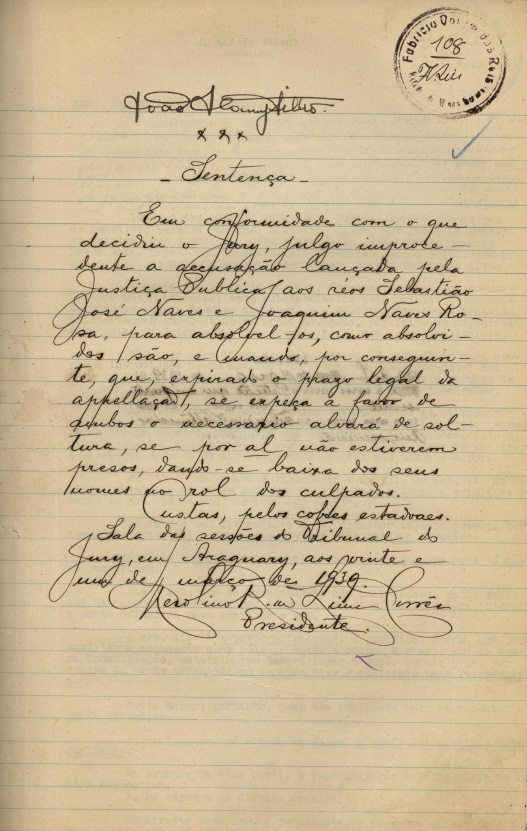 Fabricio Dos Reis
108
João Alamy Filho.
x x x
- Sentença -
Em conformidade com o que
decidiu o Jury, julgo improce-
dente a accusação lançada pela
Justiça Publica aos réos Sebastião
José Naves e Joaquim Naves Ro-
sa, para absolvel-os, como absolvi-
dos são, e mando, por conseguin-
te, que, expirado o prazo legal da
appellação, se expeça a favor de
ambos o necessario alvará de sol-
tura, se por al não estiverem
presos, dando-se baixa dos seus
nomes no rol dos culpados.
Custas, pelos cofres estadoaes.
Sala das sessões do Tribunal do
Jury, em Araguary, aos vinte e
um de março de 1939.
Merolino R. de Lima Corrêa
Presidente.